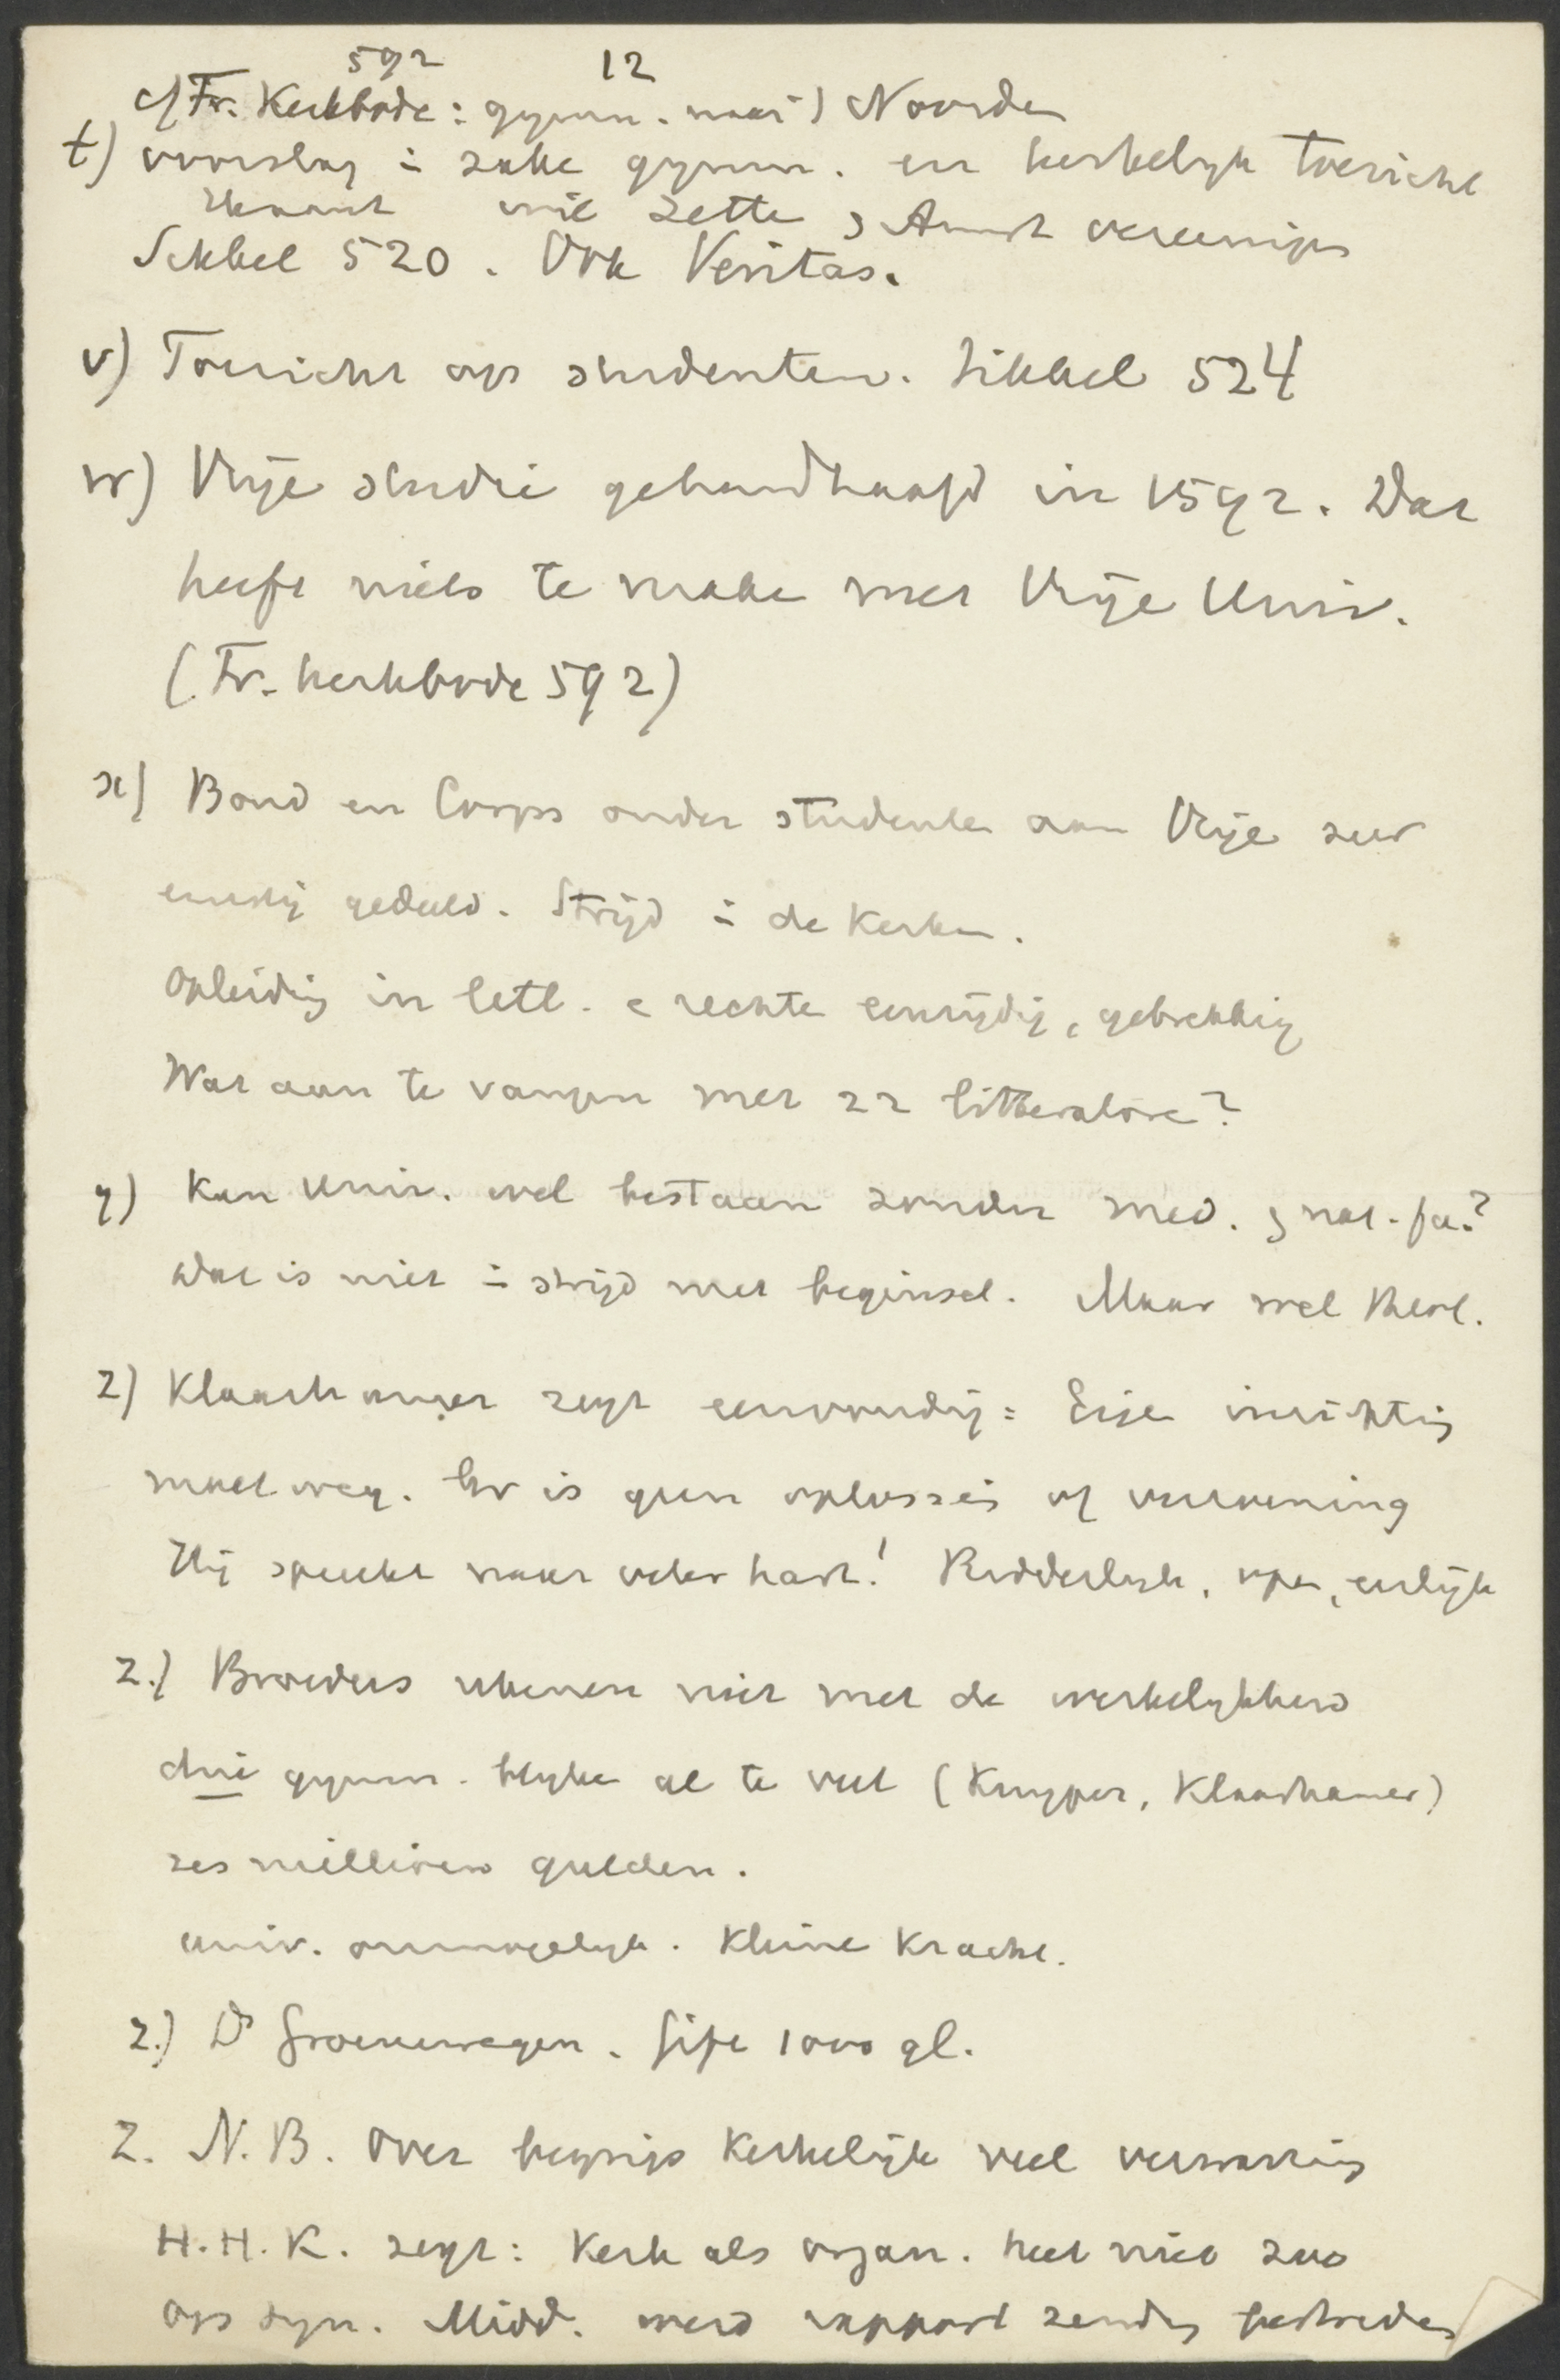 592 12
cf Fr. Kerkbode: gymn. naar 't Noorden
t) voorslag in zake gymn. en kerkelijk toezicht
niemand wil zette & Amst vereenigen
Sikkel 520. Ook Veritas.
v) Toezicht op studenten. Sikkel 524
w) Vrije studie gehandhaafd in 1592. Dat
heeft niets te make met Vrije Univ.
(Fr. Kerkbode 592)
x) Bond en Corps onder studenten aan Vrije zeer
ernstig geduld. Strijd in de Kerken.
Opleiding in lett. e rechte eenzijdig, gebrekkig
Wat aan te vangen met 22 litteratore?
y) Kan Univ. wel bestaan zonder med. & nat. fa.?
Dat is niet in strijd met beginsel. Maar wel theol.
z) Klaarhamer zegt eenvoudig: Eige inrichting
moet weg. Er is geen oplossing of verzoening
Hij spreekt naar veler hart! Ridderlijk, open, eerlijk
z.) Broeders rekenen niet met de werkelijkheid
drie gymn. blijke al te veel (Kuyper, Klaarhamer)
zes millioen gulden.
univ. onmogelijk. Kleine Kracht.
z.) Ds Groenewegen. Gift 1000 gl.
Z. N.B. Over begrip Kerkelijk veel verwarring
H.H.K. zegt: Kerk als organ. heet niet zoo
Op syn. Midd. werd rapport zending bestreden